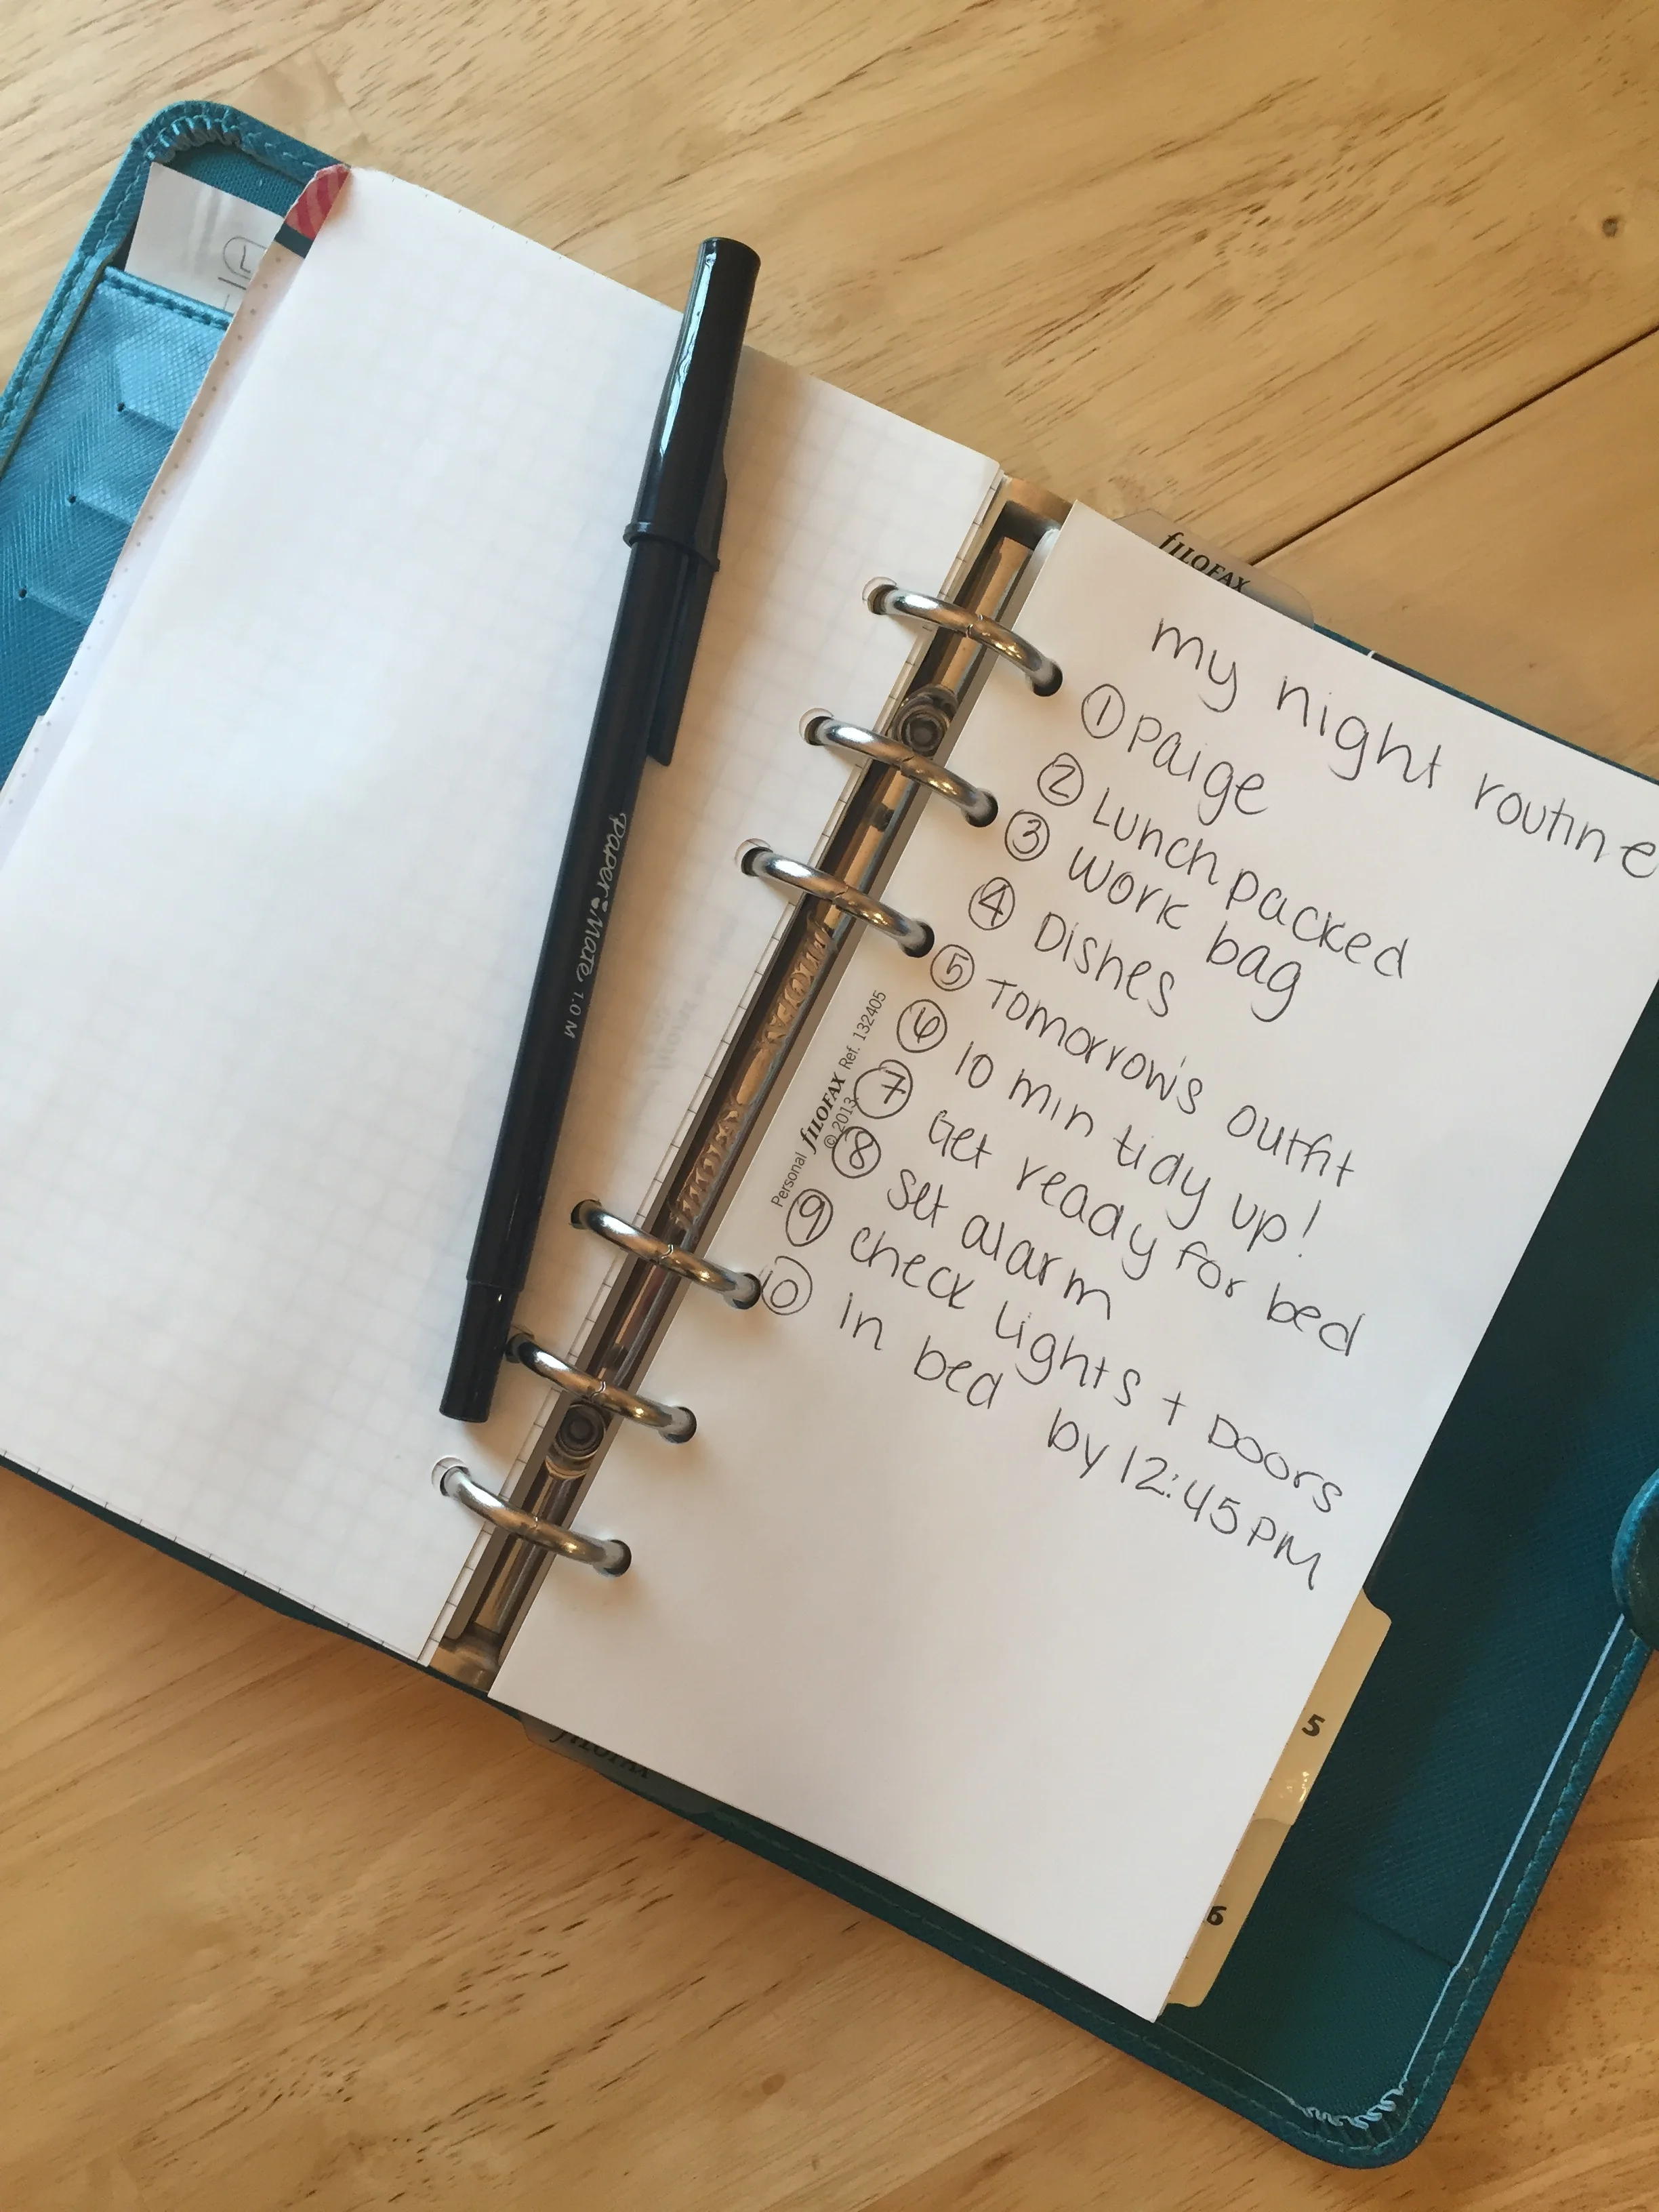 my night routine
① Paige
② Lunch packed
③ Work bag
④ Dishes
⑤ Tomorrow's outfit
⑥ 10 min tidy up!
⑦ Get ready for bed
⑧ Set alarm
⑨ check Lights + Doors
⑩ in bed by 12:45 PM
fILOFAX
Personal fILOFAX Ref. 132405
© 2013
Paper Mate 1.0 M
5
6
fILOFAX